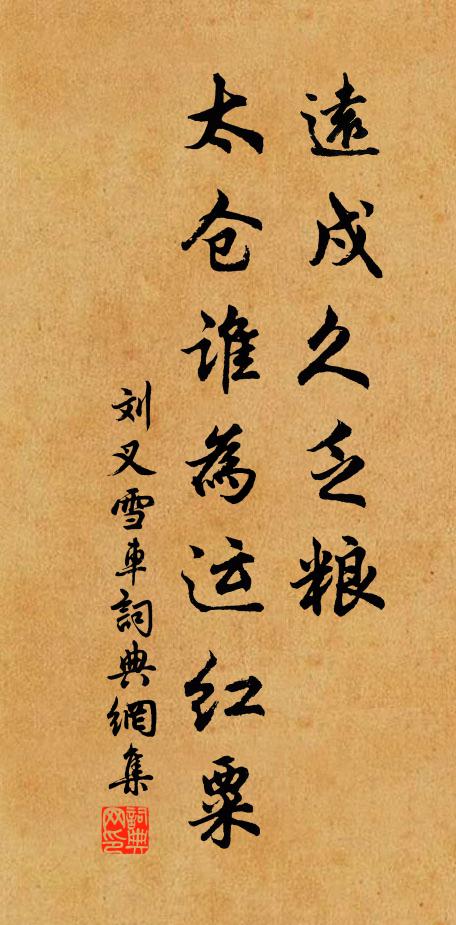 遠戍久乏粮
太仓谁為运红粟
刘叉雪車詞典網集
詞典网印